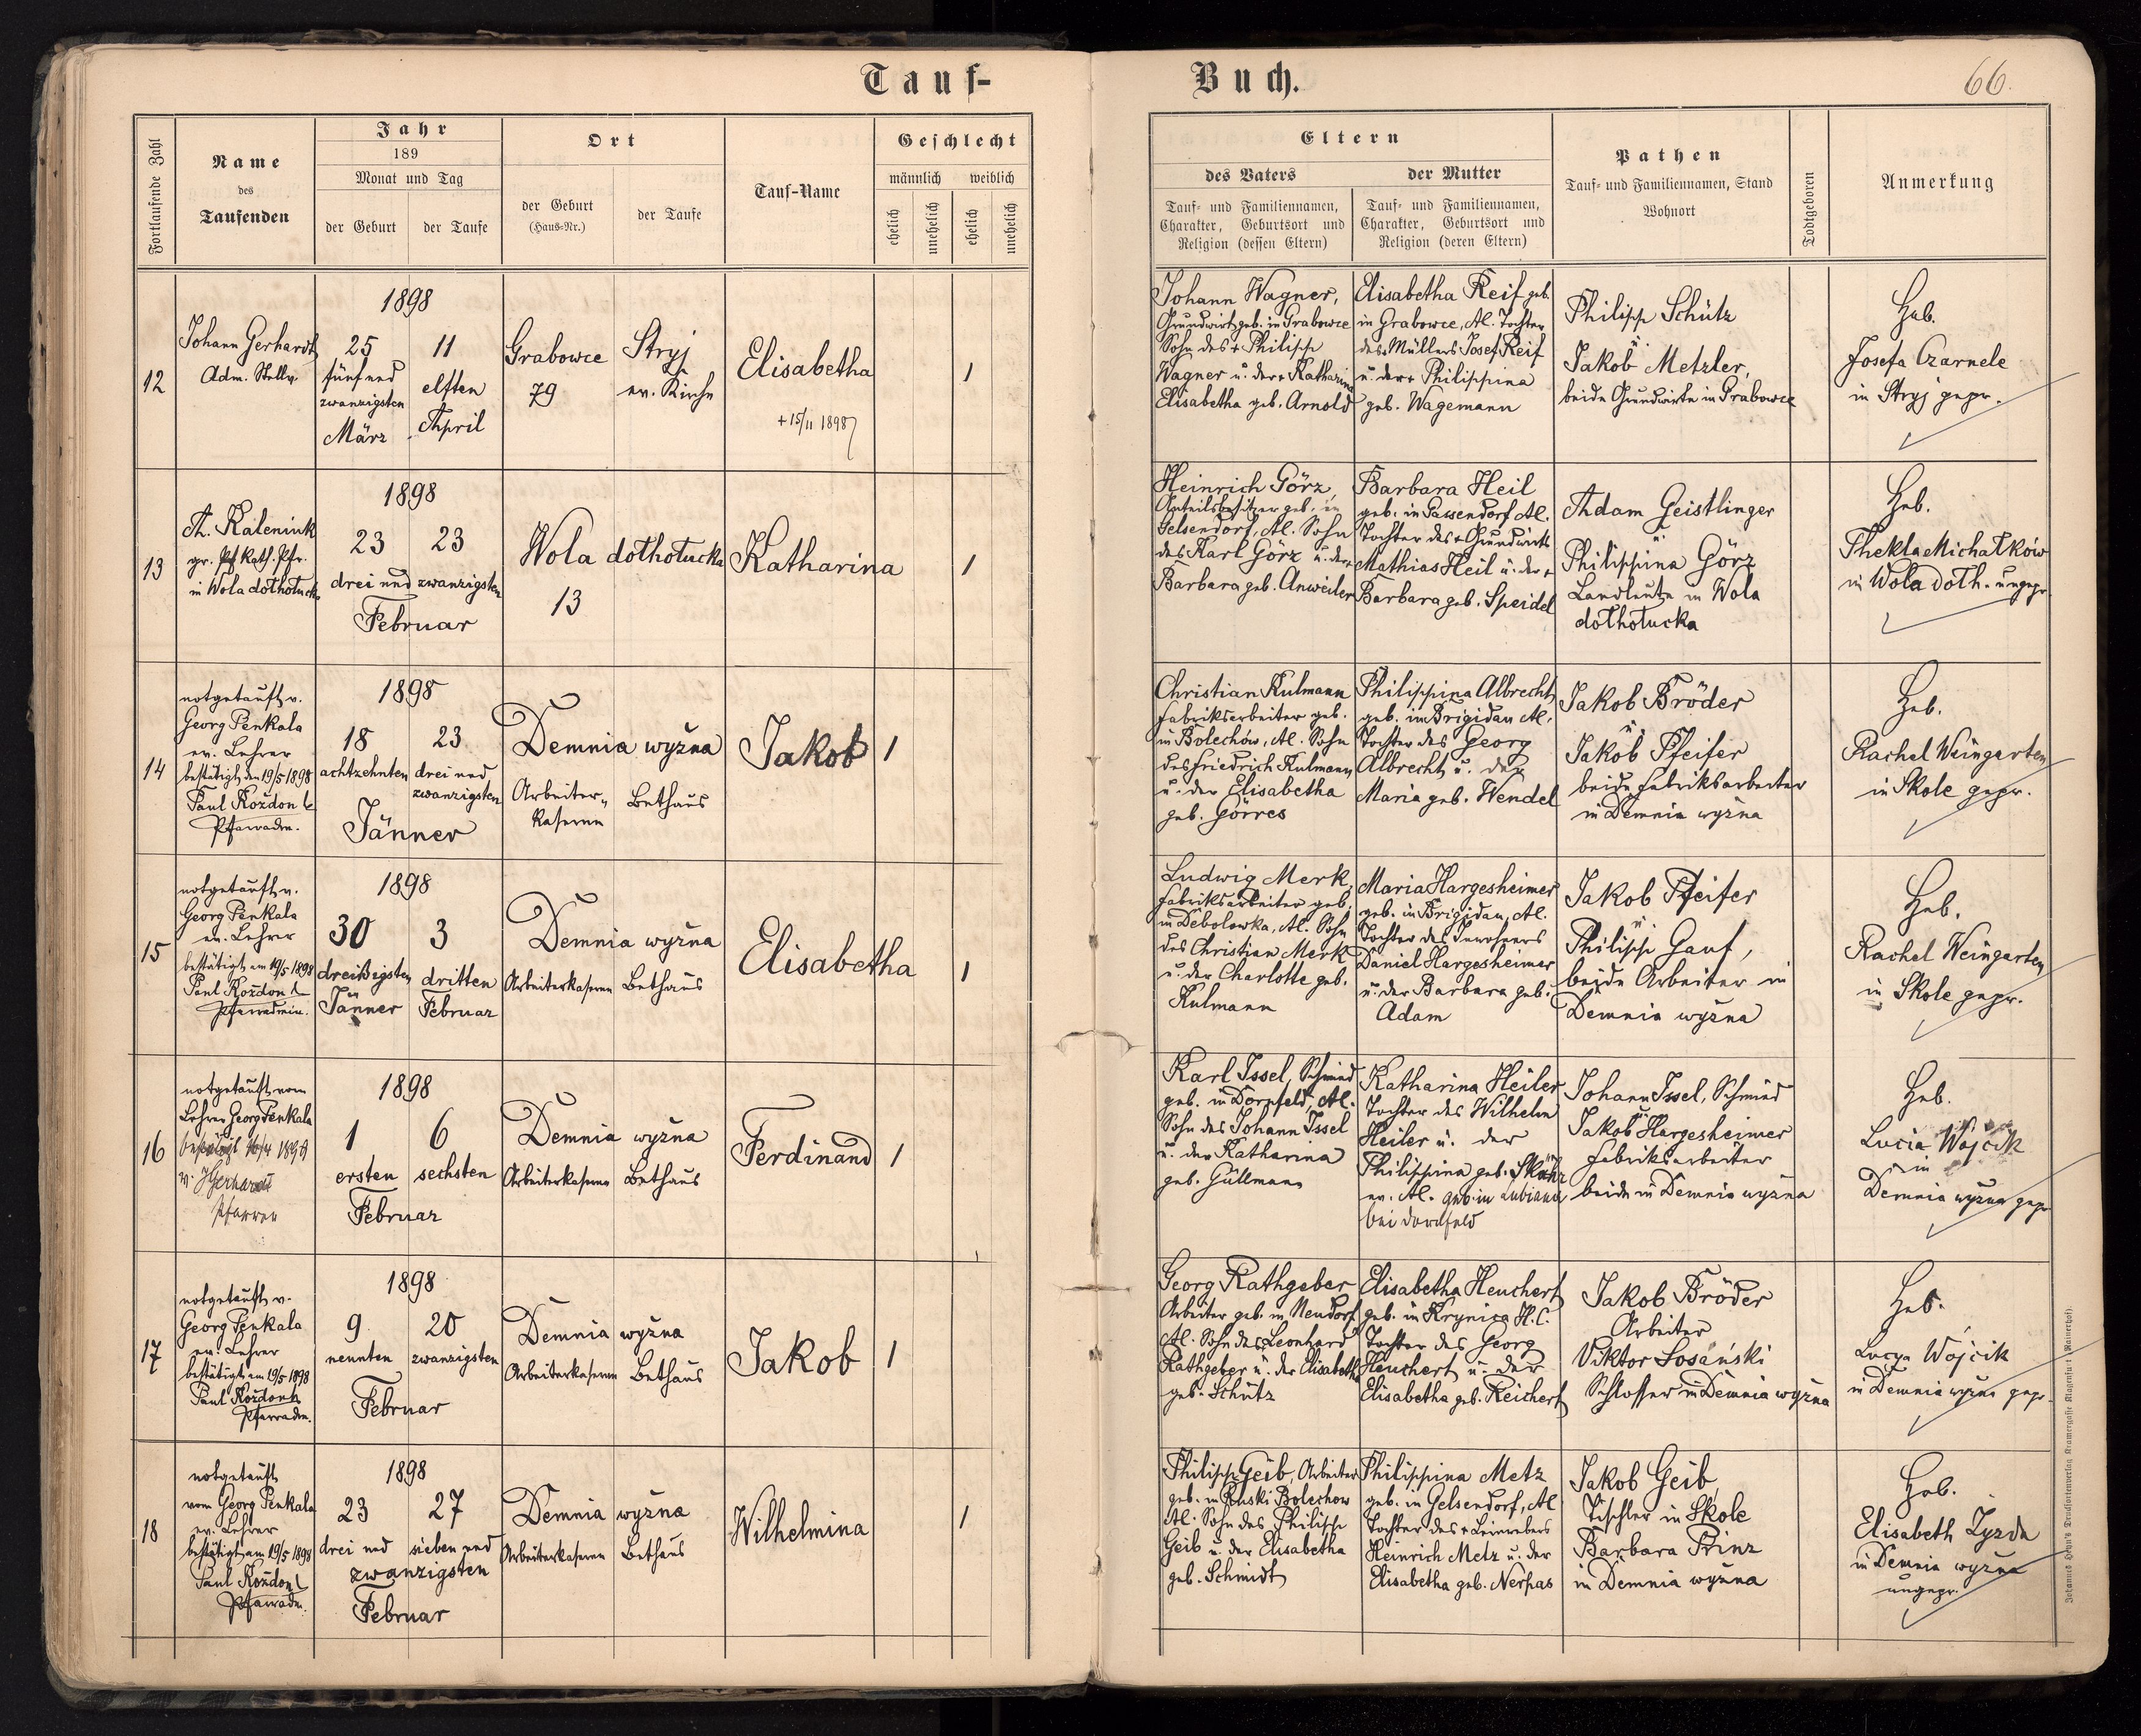 Tauf-
Buch.
66.
Fortlaufende Zahl
Name
des
Taufenden
Jahr
189
Monat und Tag
der Geburt
der Taufe
Ort
der Geburt
(Haus-Nr.)
der Taufe
Tauf-Name
Geschlecht
männlich
weiblich
ehelich
unehelich
ehelich
unehelich
Eltern
des Vaters
Tauf- und Familiennamen,
Charakter, Geburtsort und
Religion (dessen Eltern)
der Mutter
Tauf- und Familiennamen,
Charakter, Geburtsort und
Religion (deren Eltern)
Pathen
Tauf- und Familiennamen, Stand
Wohnort
Todtgeboren
Anmerkung
12
Johann Gerhardt
Adm. Stellv.
1898
25
fünfund
zwanzigsten
März
11
elften
April
Grabowce
79
Stryj
ev. Kirche
Elisabetha
+ 15/11 1898
1
Johann Wagner,
Grundwirt geb. in Grabowce
Sohn des + Philipp
Wagner u. der + Katharina
Elisabetha geb. Arnold
Elisabetha Reif geb.
in Grabowce, A.C. Tochter
des + Müllers Josef Reif
u. der + Philippina
geb. Wagemann
Philipp Schütz
u.
Jakob Metzler,
beide Grundwirte in Grabowce
Heb.
Josefa Czarnele
in Stryj gepr.
13
Th. Kaleniuk
gr. kath. Pfr.
in Wola dołhołucka
1898
23
23
drei und zwanzigsten
Februar
Wola dołhołucka
13
Katharina
1
Heinrich Görz,
Anteilsbesitzer geb. in
Gelsendorf, A.C. Sohn
des Karl Görz u. der +
Barbara geb. Anweiler
Barbara Heil
geb. in Gassendorf A.C.
Tochter des + Grundwirts
Mathias Heil u. der +
Barbara geb. Speidel
Adam Geistlinger
u.
Philippina Görz
Landleute in Wola
dołhołucka
Heb.
Thekla Michałków
in Wola dołh. ungepr.
14
notgetauft v.
Georg Penkala
ev. Lehrer
bestätigt den 19/5 1898
Paul Kozdon
Pfarradm.
1898
18
achtzehnten
23
drei und
zwanzigsten
Jänner
Demnia wyżna
Arbeiter-
kaserne
Bethaus
Jakob
1
Christian Kulmann
Fabriksarbeiter geb.
in Bolechów, A.C. Sohn
des Friedrich Kulmann
u. der Elisabetha
geb. Görres
Philippina Albrecht
geb. in Brigidau A.C.
Tochter des Georg
Albrecht u. der
Maria geb. Wendel
Jakob Bröder
u.
Jakob Pfeifer
beide Fabriksarbeiter
in Demnia wyżna
Heb.
Rachel Weingarten
in Skole gepr.
15
notgetauft v.
Georg Penkala
ev. Lehrer
bestätigt am 19/5 1898
Paul Kozdon
Pfarradmin.
1898
30
dreißigsten
Jänner
3
dritten
Februar
Demnia wyżna
Arbeiterkaserne
Bethaus
Elisabetha
1
Ludwig Merk,
Fabriksarbeiter geb.
in Debolowka, A.C. Sohn
des Christian Merk
u. der Charlotte geb.
Kulmann
Maria Hargesheimer
geb. in Brigidau, A.C.
Tochter des Inwohners
Daniel Hargesheimer
u. der Barbara geb.
Adam
Jakob Pfeifer
u.
Philipp Gauf,
beide Arbeiter in
Demnia wyżna
Heb.
Rachel Weingarten
in Skole gepr.
16
notgetauft vom
Lehrer Georg Penkala
bestätigt 1898
v. JGerhardt
Pfarrer
1898
1
ersten
6
sechsten
Februar
Demnia wyżna
Arbeiterkaserne
Bethaus
Ferdinand
1
Karl Issel, Schmied
geb. in Dornfeld, A.C.
Sohn des Johann Issel
u. der Katharina
geb. Güllmann
Katharina Heiler
Tochter des Wilhelm
Heiler u. der
Philippina geb.
ev. A.C. geb. in Lubiana
bei Dornfeld
Johann Issel, Schmied
u.
Jakob Hargesheimer
Fabriksarbeiter
beide in Demnia wyżna
Heb.
Lucia Wójcik
in
Demnia wyżna gepr.
17
notgetauft v.
Georg Penkala
ev. Lehrer
bestätigt am 19/5 1898
Paul Kozdon
Pfarradm.
1898
9
neunten
20
zwanzigsten
Februar
Demnia wyżna
Arbeiterkaserne
Bethaus
Jakob
1
Georg Rathgeber
Arbeiter geb. in Neudorf
A.C. Sohn des Leonhard
Rathgeber u. der Elisabeth
geb. Schütz
Elisabetha Heuchert
geb. in Krynica H.C.
Tochter des Georg
Heuchert u. der
Elisabetha geb. Reichert
Jakob Bröder
Arbeiter
Viktor Sosański
Schlosser in Demnia wyżna
Heb.
Lucya Wójcik
in Demnia wyżna gepr.
18
notgetauft
vom Georg Penkala
ev. Lehrer
bestätigt am 19/5 1898
Paul Kozdon
Pfarradm.
1898
23
27
drei und
sieben und
zwanzigsten
Februar
Demnia wyżna
Arbeiterkaserne
Bethaus
Wilhelmina
1
Philipp Geib, Arbeiter
geb. in Ruski Bolechow
A.C. Sohn des Philipp
Geib u. der Elisabetha
geb. Schmidt
Philippina Metz
geb. in Gelsendorf, A.C.
Tochter des + Leinwebers
Heinrich Metz u. der
Elisabetha geb. Nerpas
Jakob Geib,
Tischler in Skole
Barbara Prinz
in Demnia wyżna
Heb.
Elisabeth Zyzda
in Demnia wyżna
ungepr.